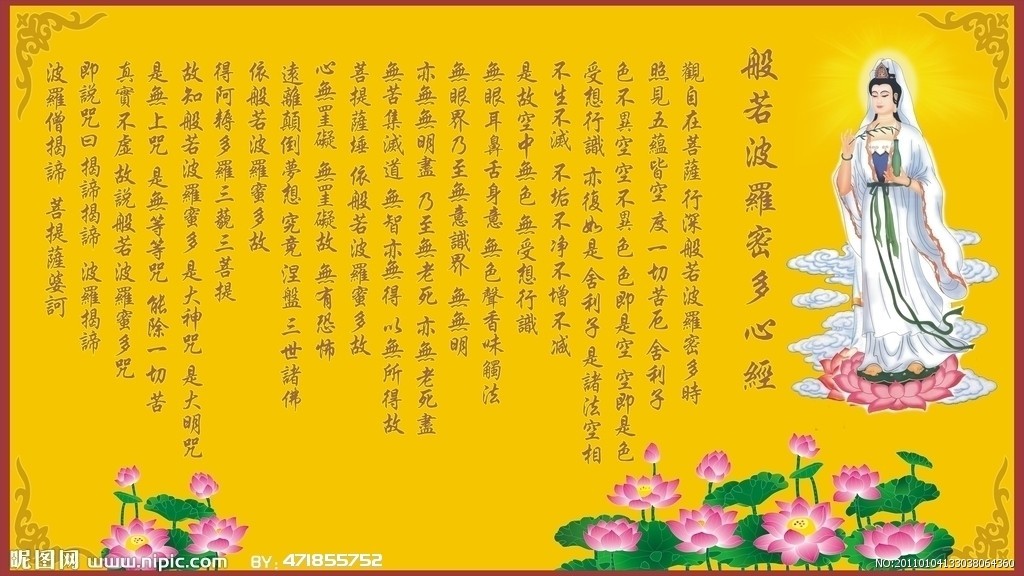 般若波羅密多心經
觀自在菩薩 行深般若波羅密多時
照見五蘊皆空 度一切苦厄 舍利子
色不異空 空不異色 色即是空 空即是色
受想行識 亦復如是 舍利子 是諸法空相
不生不滅 不垢不净 不增不減
是故空中無色 無受想行識
無眼耳鼻舌身意 無色聲香味觸法
無眼界 乃至無意識界 無無明
亦無無明盡 乃至無老死 亦無老死盡
無苦集滅道 無智亦無得 以無所得故
菩提薩埵 依般若波羅蜜多故
心無罣礙 無罣礙故 無有恐怖
遠離顛倒夢想 究竟涅盤 三世諸佛
依般若波羅蜜多故
得阿耨多羅三藐三菩提
故知般若波羅蜜多 是大神咒 是大明咒
是無上咒 是無等等咒 能除一切苦
真實不虛 故說般若波羅蜜多咒
即說咒曰 揭諦揭諦 波羅揭諦
波羅僧揭諦 菩提薩婆訶
昵图网 www.nipic.com BY: 471855752
NO:20110104133038064360